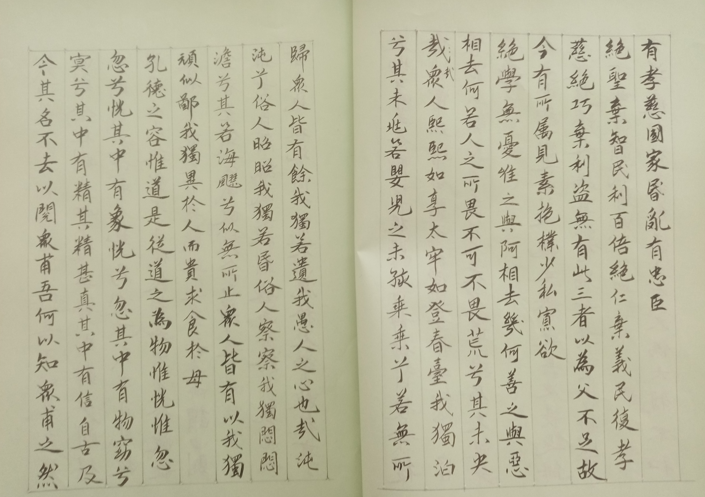 有孝慈國家昏亂有忠臣
絕聖棄智民利百倍絕仁棄義民復孝
慈絕巧棄利盜無有此三者以為父不足故
令有所属見素抱樸少私寡欲
絕學無憂唯之與阿相去幾何善之與惡
相去何若人之所畏不可不畏荒兮其未央
哉眾人熙熙如享太牢如登春臺我獨泊
兮其未兆若嬰兒之未孩乘乘兮若無所
歸眾人皆有餘我獨若遺我愚人之心也哉沌
沌兮俗人昭昭我獨若昏俗人察察我獨悶悶
澹兮其若海飂兮似無所止眾人皆有以我獨
頑似鄙我獨異於人而貴求食於母
孔德之容惟道是從道之為物惟恍惟忽
忽兮恍其中有象恍兮忽其中有物窈兮
冥兮其中有精其精甚真其中有信自古及
今其名不去以閱眾甫吾何以知眾甫之然